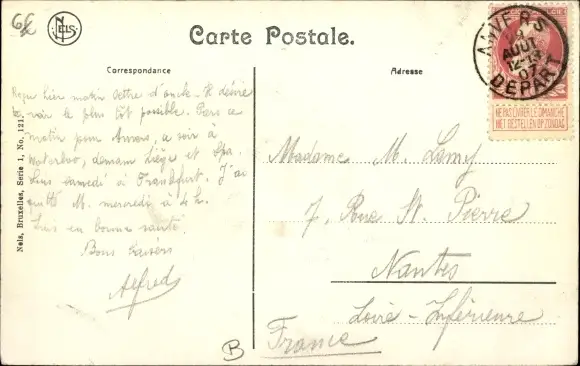 6f
NELS
Carte Postale.
Correspondance
Adresse
ANVERS
AOUT
12-13
07
DEPART
NE PAS LIVRER LE DIMANCHE
NIET BESTELLEN OP ZONDAG
Nels, Bruxelles, Serie 1, No. 121.
Reçu hier matin lettre d'oncle. Il désire
te voir le plus tôt possible. Pars ce
matin pour Anvers, ce soir à
Waterloo, demain Liège et Spa.
Serai samedi à Frankfurt. J'ai
quitté M. mercredi à 4 h.
en bonne santé.
Bons baisers
Alfred
Madame M. Lamy
7, Rue St. Pierre
Nantes
Loire-Inférieure
France
B